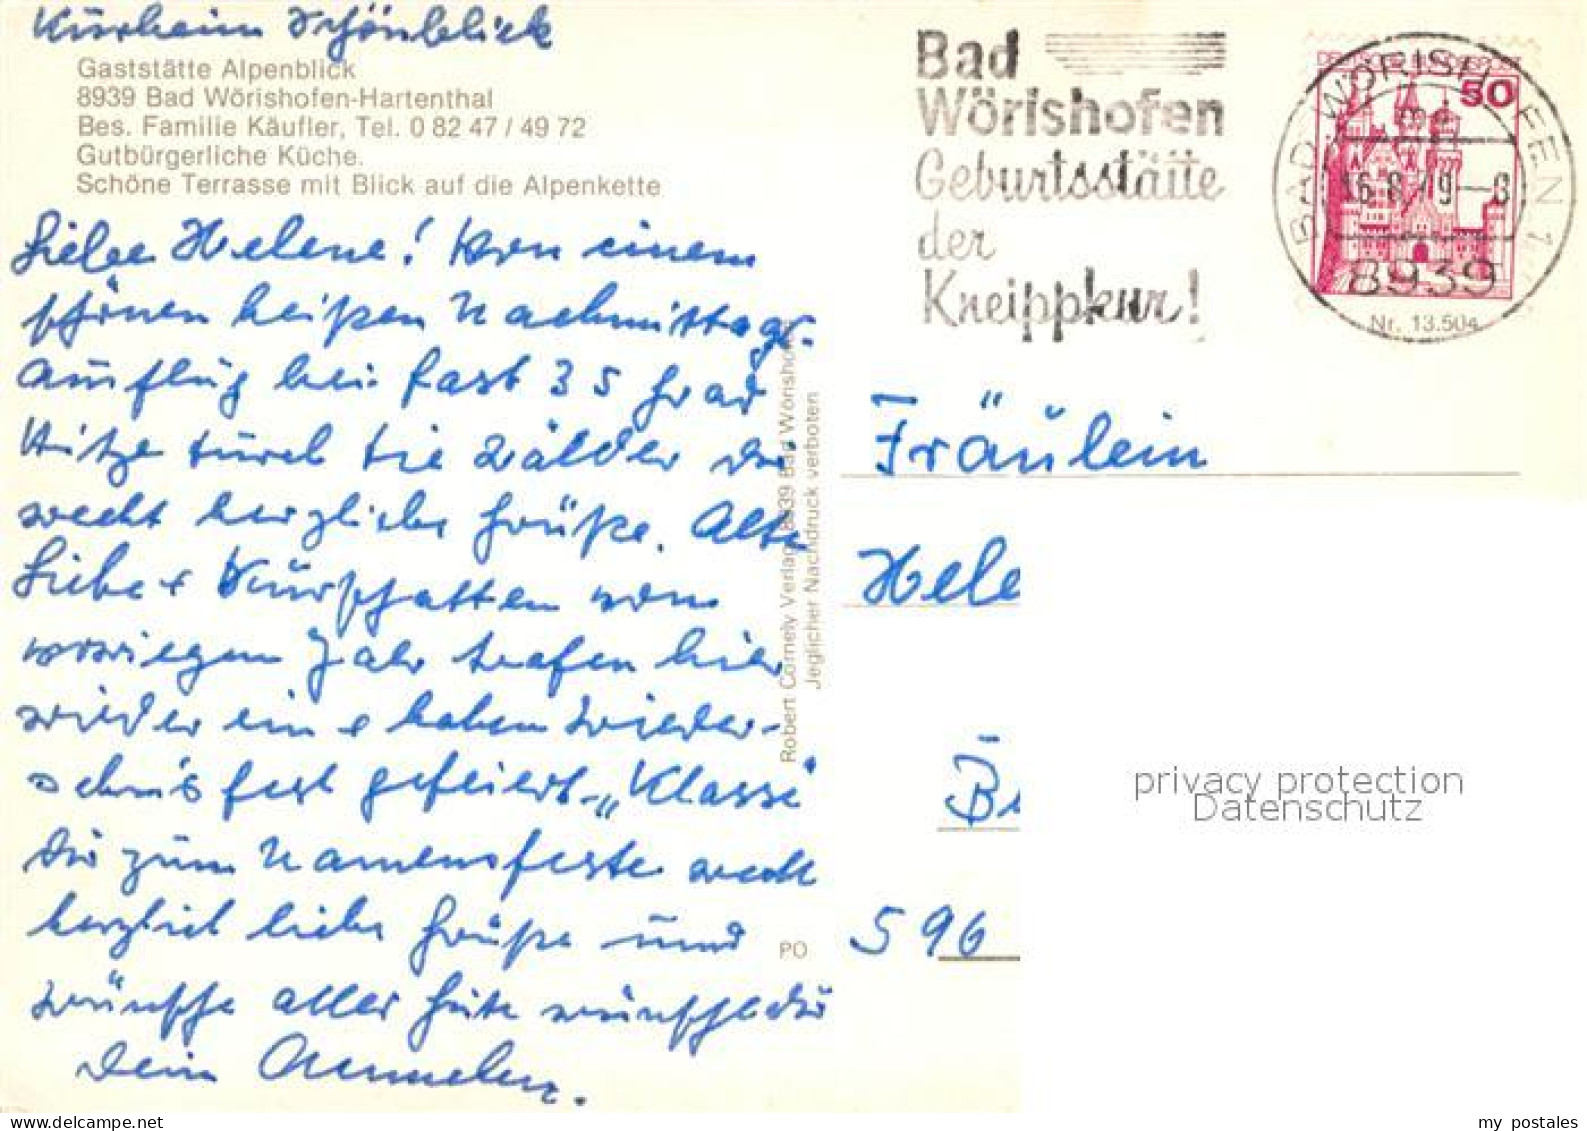 Kurheim Schönblick
Gaststätte Alpenblick
8939 Bad Wörishofen-Hartenthal
Bes. Familie Käufler, Tel. 0 82 47 / 49 72
Gutbürgerliche Küche.
Schöne Terrasse mit Blick auf die Alpenkette
Liebe Helene! Von einem
schönen heißen Nachmittags-
ausflug bei fast 35 Grad
Hitze durch die Wälder Dir
recht herzliche Grüße. Alte
Liebe + Kurschatten vom
vorigen Jahr trafen hier
wieder ein + haben Wieder-
sehn's fest gefeiert „Klasse"
Dir zum Namensfeste recht
herzlich liebe Grüße und
Wünsche alles Gute wünscht Dir
Dein
Robert Cornely Verlag, 8939 Bad Wörishofen
Jeglicher Nachdruck verboten
PO
Bad
Wörishofen
Geburtsstätte
der
Kneippkur!
50
BAD WÖRISHOFEN 1
16.8.79
8939
Nr. 13.504
Fräulein
Hele
B
596
privacy protection
Datenschutz
my postales